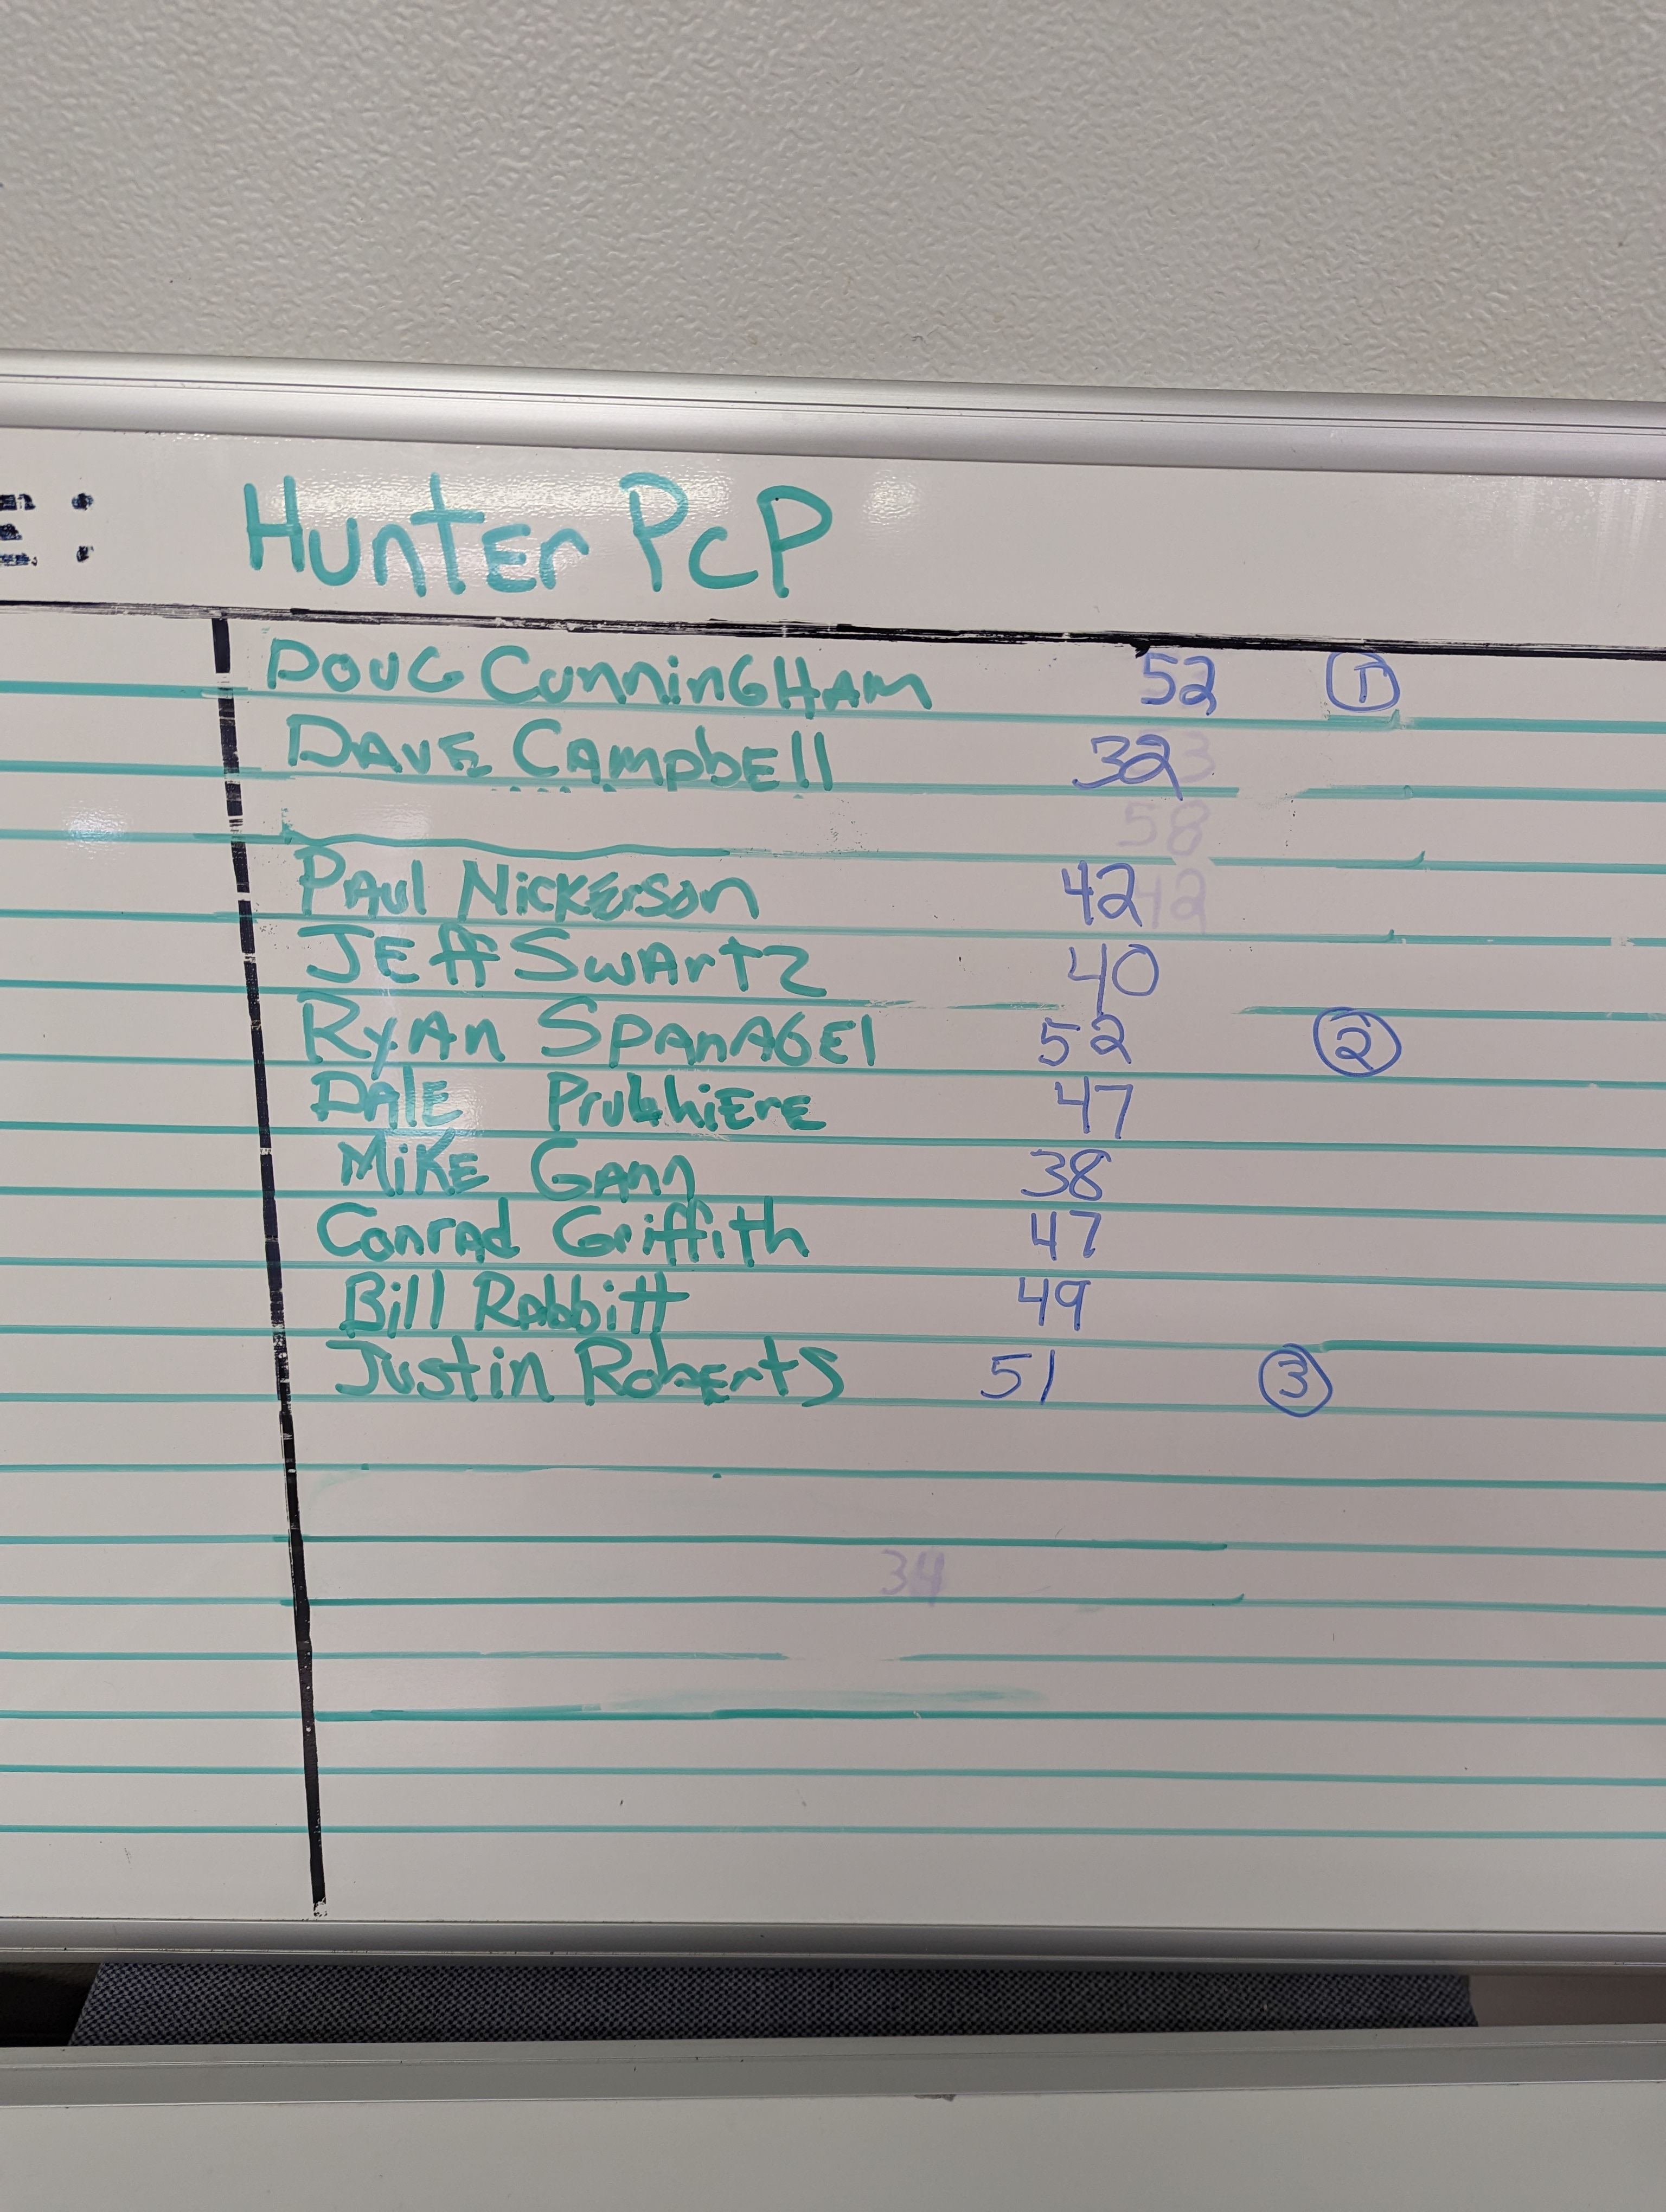 E: Hunter PCP
Doug Cunningham 52 1
Dave Campbell 32
58
Paul Nickerson 42 42
Jeff Swartz 40
Ryan Spanagel 52 2
Dale 47
Mike Gann 38
Conrad Griffith 47
Bill Rabbitt 49
Justin Roberts 51 3
34